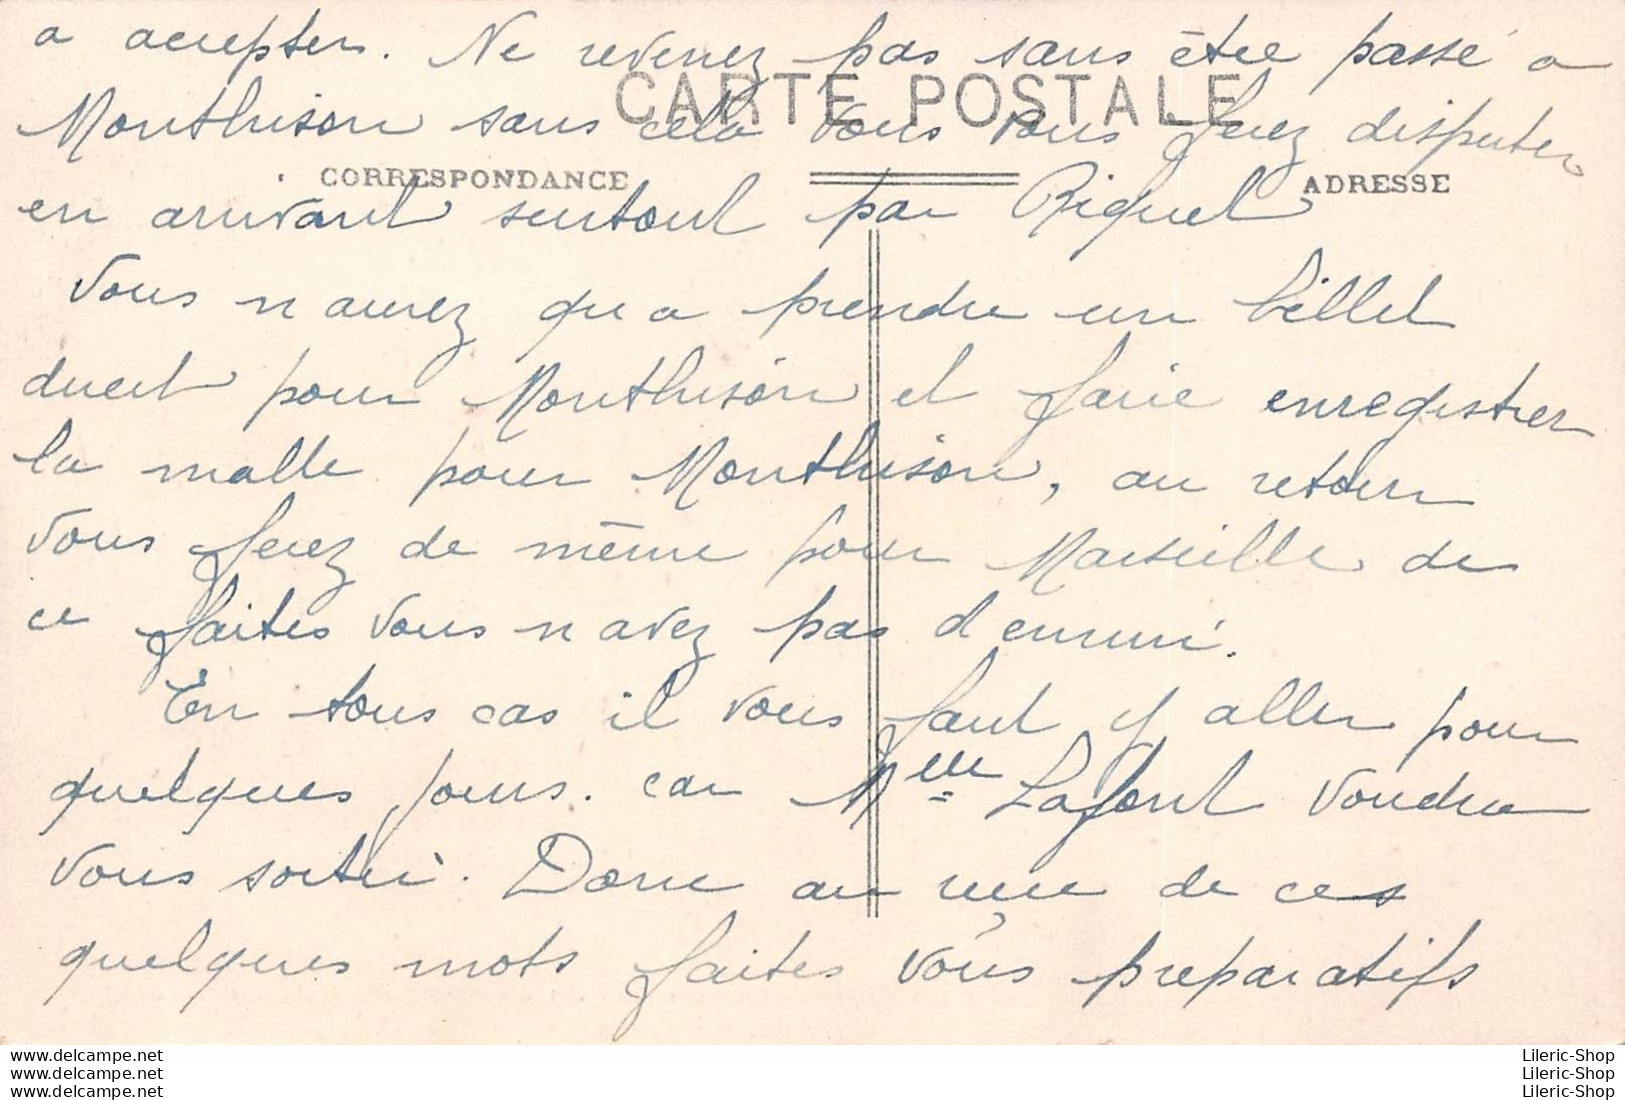 a accepter. Ne revenez pas sans être passé a
CARTE POSTALE
Monthuson sans cela vous vous ferez disputer
CORRESPONDANCE
ADRESSE
en arrivant surtout par Riquet
Vous n aurez qu a prendre un billet
direct pour Monthuson et faire enregistrer
la malle pour Monthuson, au retour
vous ferez de même pour Marseille de
ce faites vous n avez pas d ennui.
En tous cas il vous faut y aller pour
quelques jours. car Melle Lafont voudra
vous sortir. Donc au reçu de ces
quelques mots faites vous preparatifs
www.delcampe.net
www.delcampe.net
www.delcampe.net
Lileric-Shop
Lileric-Shop
Lileric-Shop